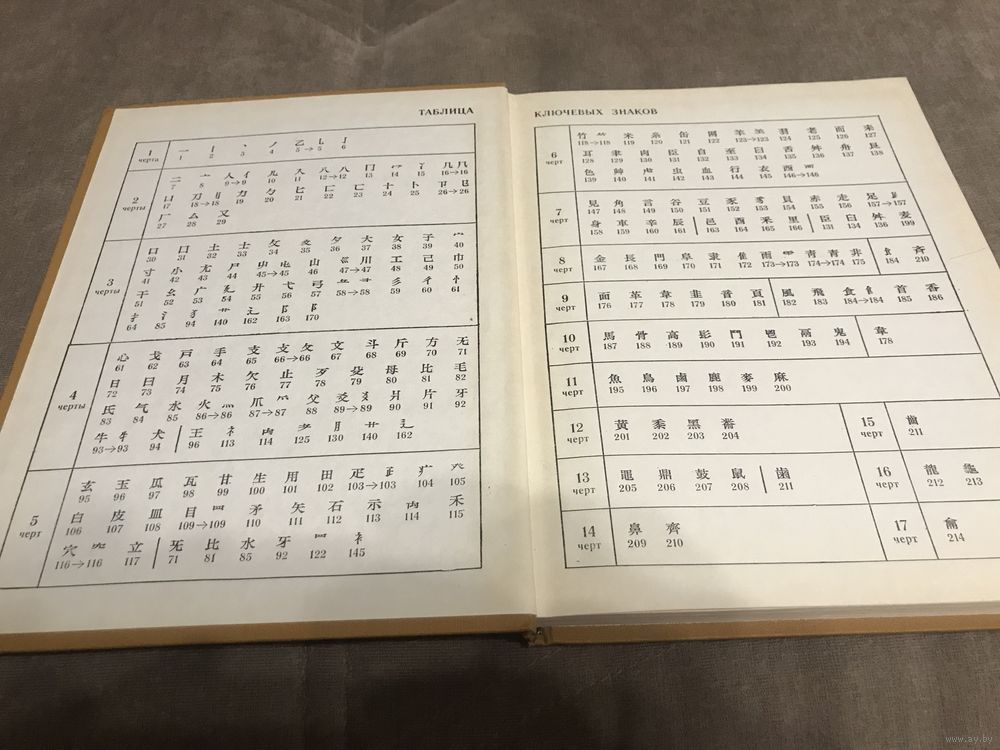 ТАБЛИЦА
1
черта
一 丨 丶 丿 乙 亅
1 2 3 4 5→5 6
2
черты
二 亠 人 亻 儿 入 八 冂 冖 冫 几
7 8 9→9 10 11 12→12 13 14 15 16→16
凵 刀 刂 力 勹 匕 匚 匸 十 卜 卩
17 18→18 19 20 21 22 23 24 25 26→26
厂 厶 又
27 28 29
3
черты
口 囗 土 士 夂 夊 夕 大 女 子 宀
30 31 32 33 34 35 36 37 38 39 40
寸 小 尢 尸 屮 山 巛 川 工 己 巾
41 42 43 44 45→45 46 47→47 48 49 50
干 幺 广 廴 廾 弋 弓 彐 彡 彳 忄
51 52 53 54 55 56 57 58→58 59 60 61
扌 氵 犭 艹 辶 阝 阝
64 85 94 140 162 163 170
4
черты
心 戈 戶 手 支 攴 攵 文 斗 斤 方 无
61 62 63 64 65 66→66 67 68 69 70 71
日 曰 月 木 欠 止 歹 殳 母 比 毛
72 73 74 75 76 77 78 79 80 81 82
氏 气 水 火 灬 爪 爫 父 爻 爿 片 牙
83 84 85 86→86 87→87 88 89→89 90 91 92
牛 牜 犬 王 礻 禸 耂 月 艹 辶
93→93 94 96 113 114 125 130 140 162
5
черт
玄 玉 瓜 瓦 甘 生 用 田 疋 疒 癶
95 96 97 98 99 100 101 102 103→103 104 105
白 皮 皿 目 罒 矛 矢 石 示 禸 禾
106 107 108 109→109 110 111 112 113 114 115
穴 立 旡 比 水 牙 罒 衤
116→116 117 71 81 85 92 122 145
КЛЮЧЕВЫХ ЗНАКОВ
6
черт
竹 米 糸 缶 网 羊 羽 老 而 耒
118→118 119 120 121 122 123→123 124 125 126 127
耳 聿 肉 臣 自 至 臼 舌 舛 舟 艮
128 129 130 131 132 133 134 135 136 137 138
色 艸 虍 虫 血 行 衣 西 覀
139 140 141 142 143 144 145 146→146
7
черт
見 角 言 谷 豆 豕 豸 貝 赤 走 足
147 148 149 150 151 152 153 154 155 156 157→157
身 車 辛 辰 邑 酉 釆 里 臣 臼 舛 麦
158 159 160 161 163 164 165 166 131 134 136 199
8
черт
金 長 門 阜 隶 隹 雨 青 青 非 飠 斉
167 168 169 170 171 172 173→173 174→174 175 184 210
9
черт
面 革 韋 韭 音 頁 風 飛 食 首 香
176 177 178 179 180 181 182 183 184→184 185 186
10
черт
馬 骨 高 髟 鬥 鬯 鬲 鬼 韋
187 188 189 190 191 192 193 194 178
11
черт
魚 鳥 鹵 鹿 麥 麻
195 196 197 198 199 200
12
черт
黃 黍 黑 黹
201 202 203 204
15
черт
齒
211
13
черт
黽 鼎 鼓 鼠 歯
205 206 207 208 211
16
черт
龍 龜
212 213
14
черт
鼻 齊
209 210
17
черт
龠
214
www.ay.by